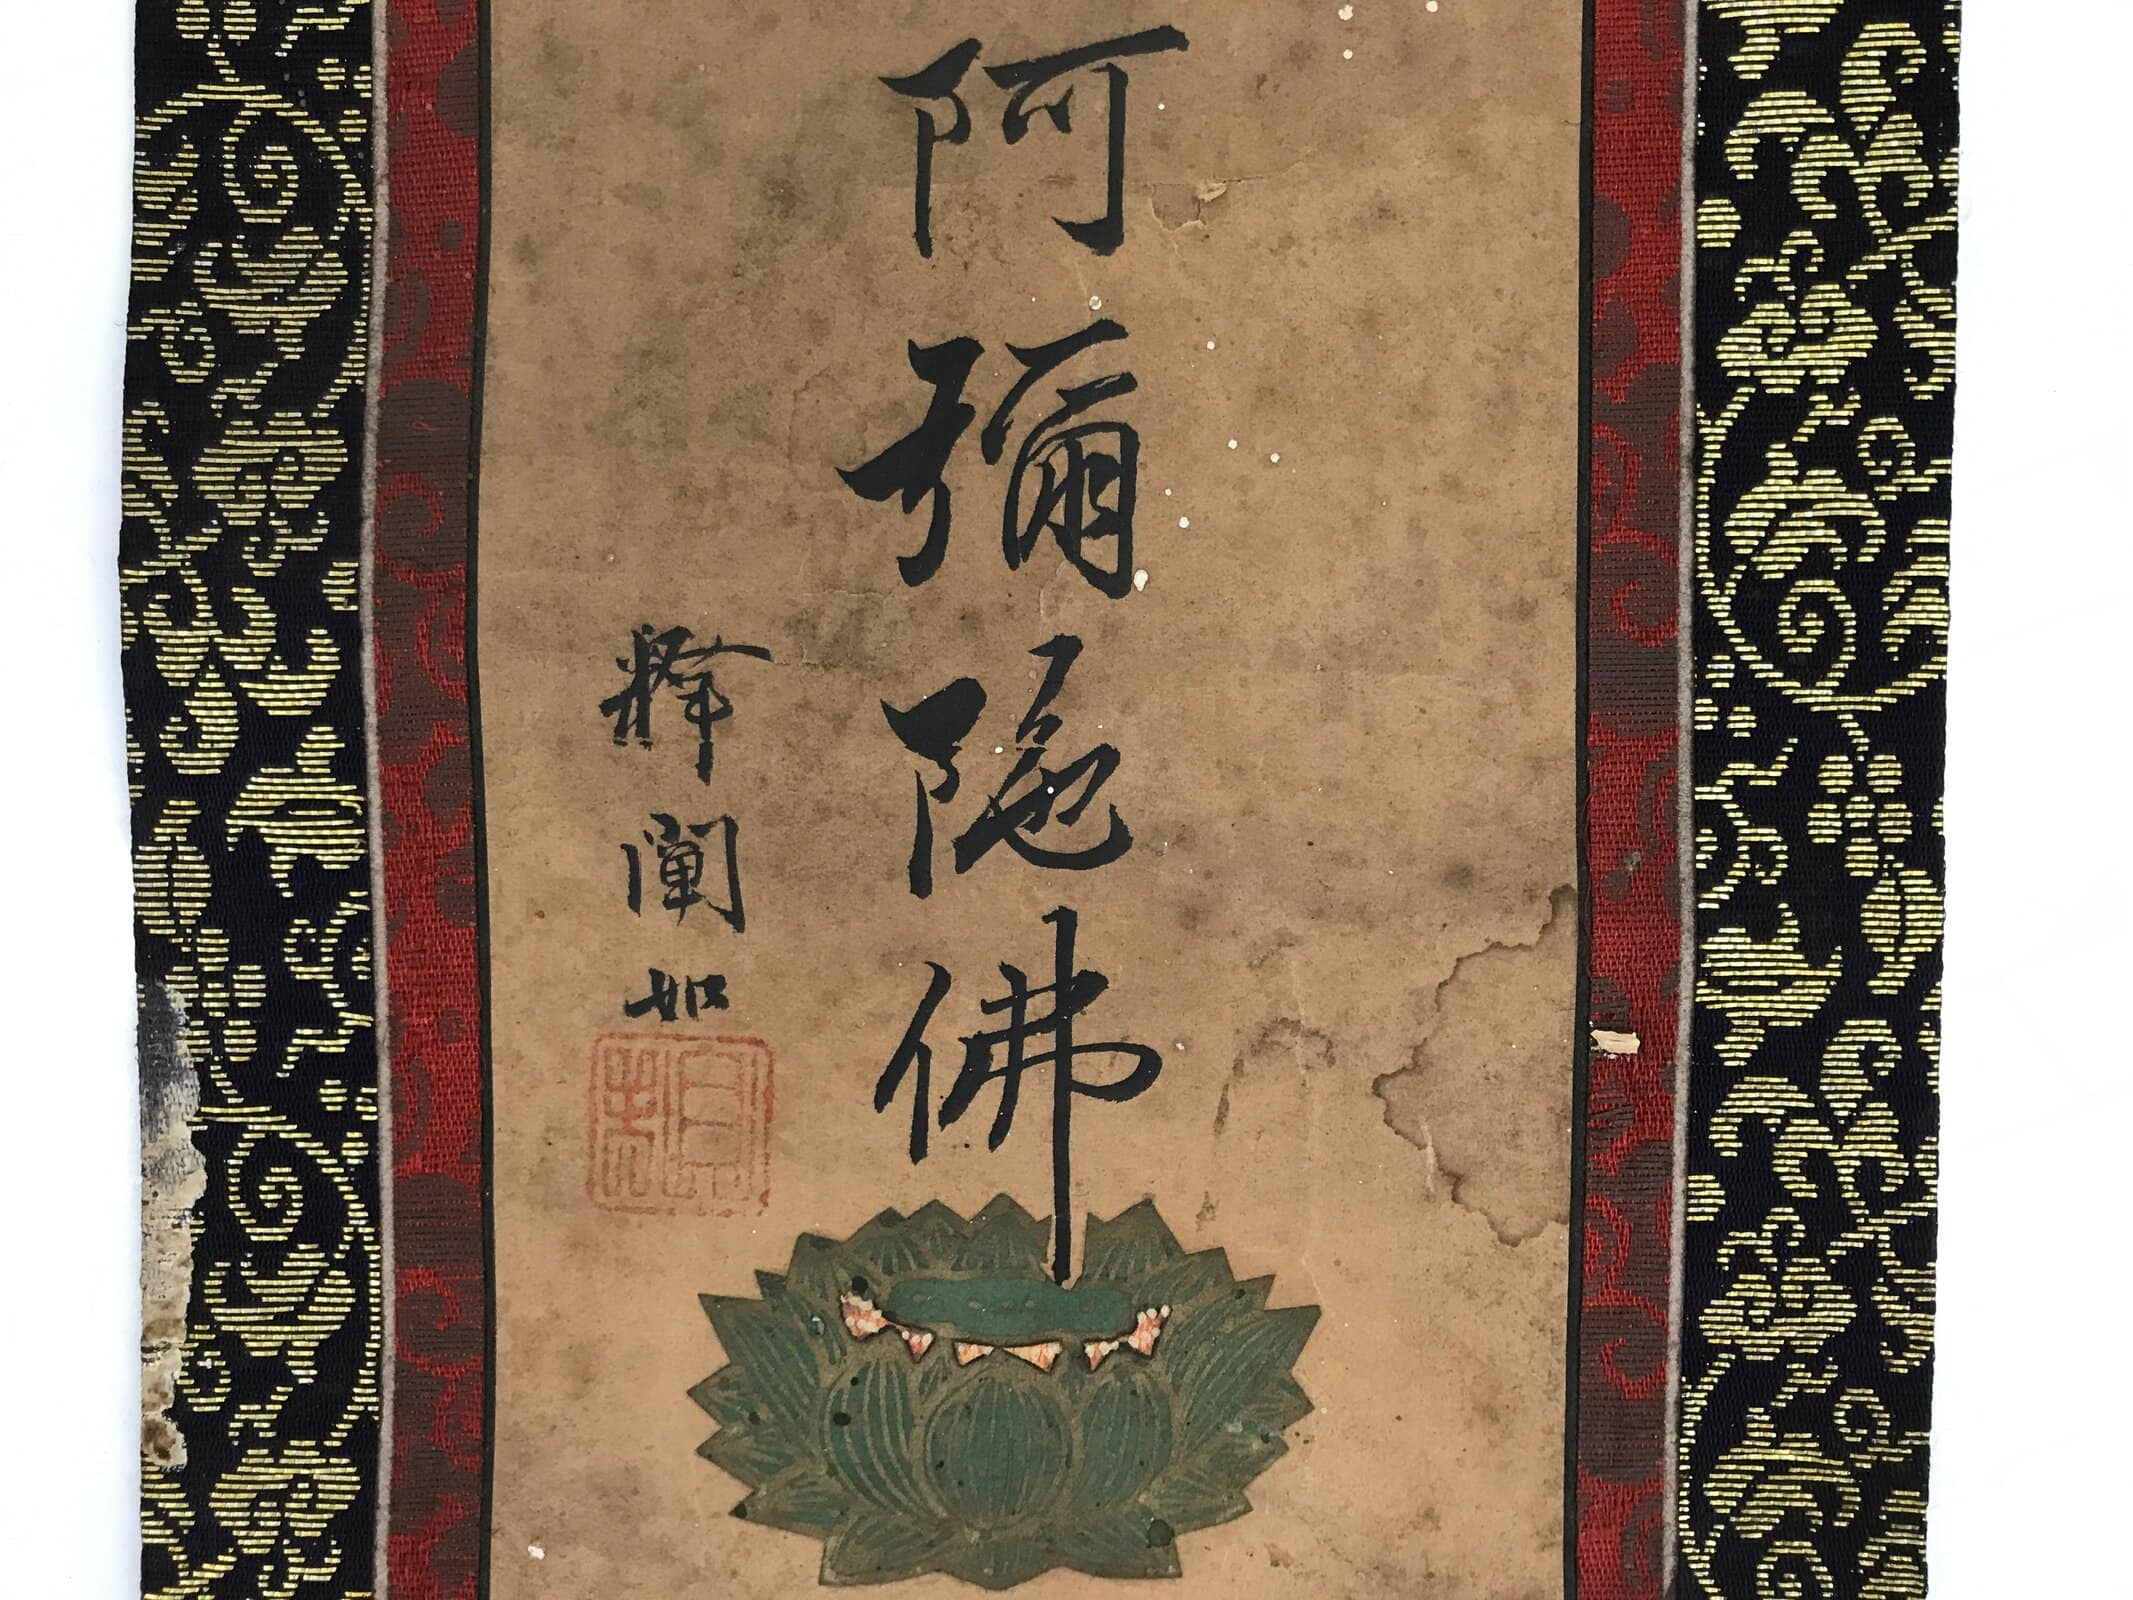 阿彌陀佛
釋闡如